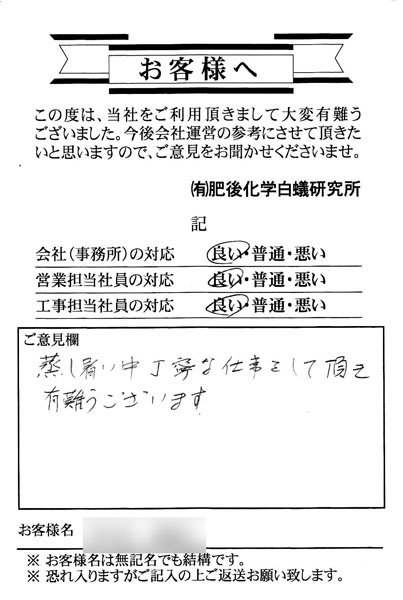 お客様へ
この度は、当社をご利用頂きまして大変有難う
ございました。今後会社運営の参考にさせて頂きた
いと思いますので、ご意見をお聞かせくださいませ。
㈲肥後化学白蟻研究所
記
会社（事務所）の対応 良い・普通・悪い
営業担当社員の対応 良い・普通・悪い
工事担当社員の対応 良い・普通・悪い
ご意見欄
蒸し暑い中丁寧な仕事をして頂き
有難うございます
お客様名
※ お客様名は無記名でも結構です。
※ 恐れ入りますがご記入の上ご返送お願い致します。